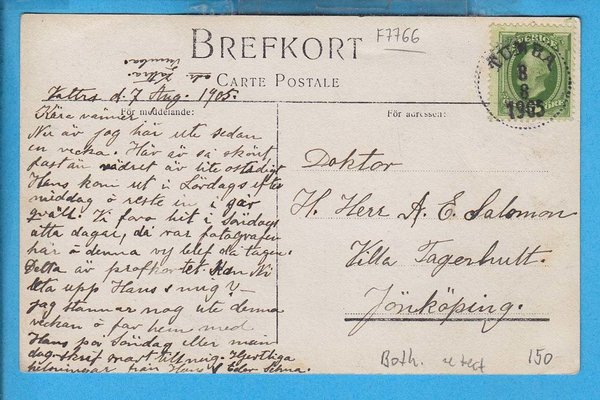 BREFKORT
CARTE POSTALE
F7766
adr. Vattra
Tumba
Vatters d. 7 Aug. 1905.
För meddelande:
Kära vänner
Nu är jag här ute sedan
en vecka. Här är så skönt
fastän vädret är lite ostadigt
Hans kom ut i Lördags efter
middag o reste in i går
qväll. Vi foro hit i Söndags
åtta dagar, då var fotografen
här o denna vy blef då tagen.
Detta är profkortet. Kan Ni
leta upp Hans o mig?
jag stannar nog ute denna
veckan o far hem med
Hans på Söndag eller mån
dag. skrif snart till mig. Hjertliga
helsningar från Hans o Eder
För adressen:
Doktor
H. Herr A. E. Salomon
Villa Fagerhult.
Jönköping.
SVERIGE
ÖRE
TUMBA
8
8
1905
Both.
150